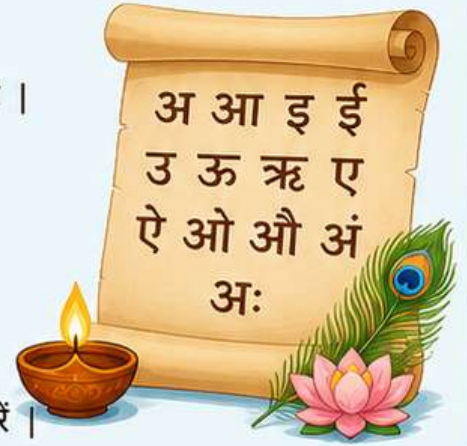 ।
अ आ इ ई
उ ऊ ऋ ए
ऐ ओ औ अं
अः
रें ।